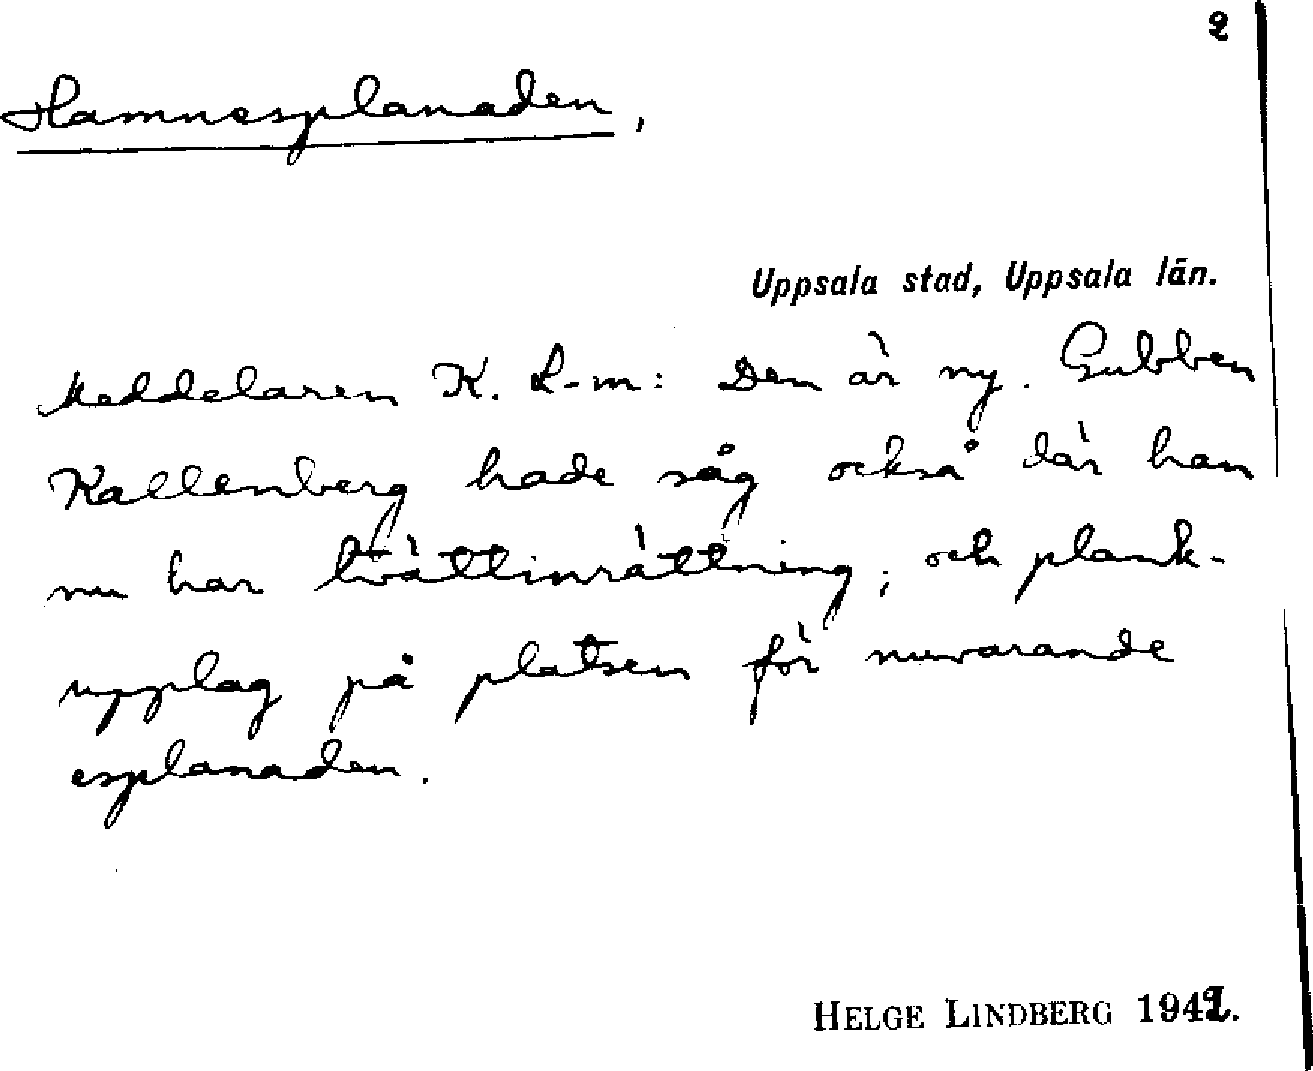 2
Hamnesplanaden,
Uppsala stad, Uppsala län.
Meddelaren K. L-m: Den är ny. Gubben
Kallenberg hade såg också där han
nu har tvättinrättning, och plank-
upplag på platsen för nuvarande
esplanaden.
HELGE LINDBERG 1942.